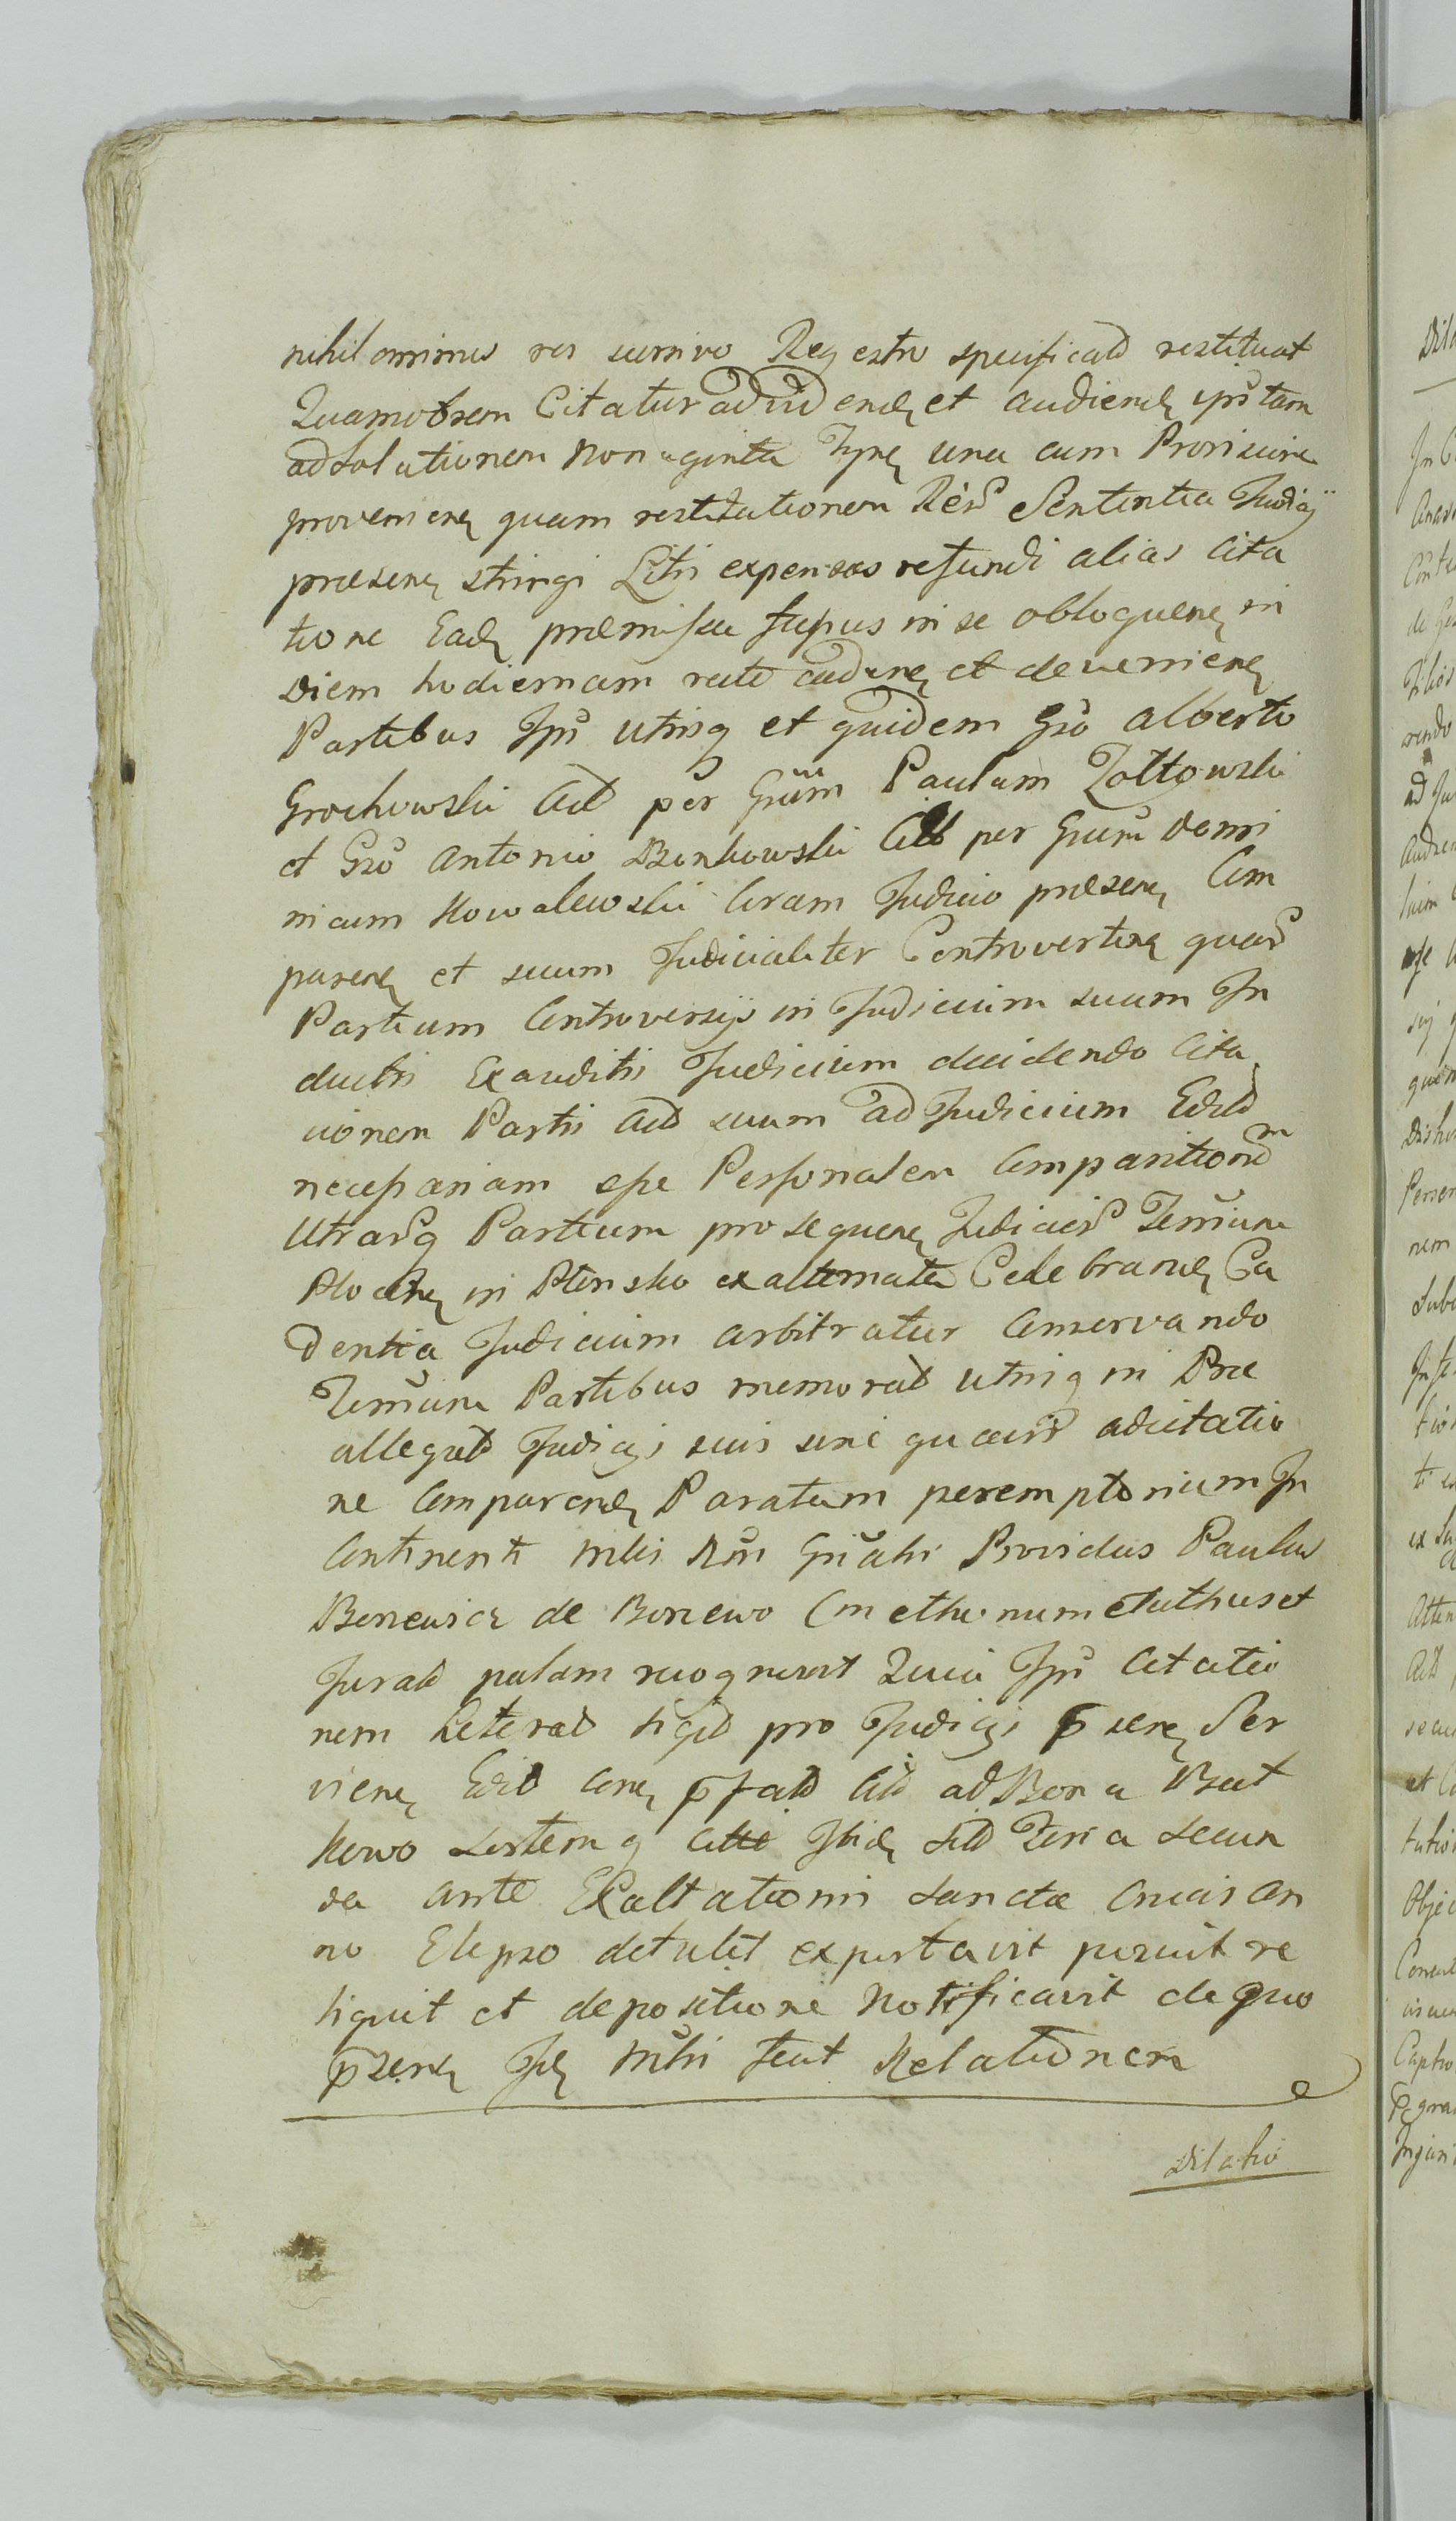 nihilominus res sursivo Regestro specificatd restituat
Quamobrem Citatur ad videnḍ et audienḍ ipŝ tam
ad Solutionem Nonaginta Tynf una cum Provisione
provenienḍ quam restitutionem Rerŝ Sententia Judicij
præsenḍ stringi Litis expensas refundi alias Cita
tione Eaḍ præmissa fusius in se obloquenḍ in
Diem hodiernam recte cadenḍ et devenienḍ
Partibus Ips̃ utrisq et quidem Gsõ Alberto
Grochowski Actd per Gsũm Paulum Zołtowski
et Gsõ Antonio Bonkowski Citd per Gsum Domi
nicum Kowalewski Coram Judicio præsenḍ Com
parenḍ et suum Judicialiter Controvertenḍ quarŝ
Partium Controversijs in Judicium suum In
ductis Exauditis Judicium decidendo Cita
tionem Partis Actd suum ad Judicium Editd
necessariam esse Personalem Comparitionem
Utrarŝq Partium pro sequenḍ Judicierŝ Termino
Plocenḍ in Płonsko ex alternata Celebranḍ Ca
dentia Judicium arbitratur Conservando
Terminum Partibus memoratd utrisq in Præ
allegatd Judicijs suis sine quavis adcitatio
ne Comparenḍ Paratum peremptorium In
Continenti Mtlis Rñi Gñalis Providus Paulus
Boniewicz de Boniewo Cmethonum et
Juratd palam recognovit Quia Ips̃ Citatio
nem Literatd sigtd pro Judicijs p̃senḍ Ser
vienḍ Editd Conḍ p̃fatd Citd ad Bona
kowo Ibiḍ sitd Feria Secun
da ante Exaltationis Sanctæ Crucis An
no Elapso detulit exportavit posuit re
liquit et de positione Notificavit de quo
p̃senḍ Mtlri fecit Relationem
Dilatio